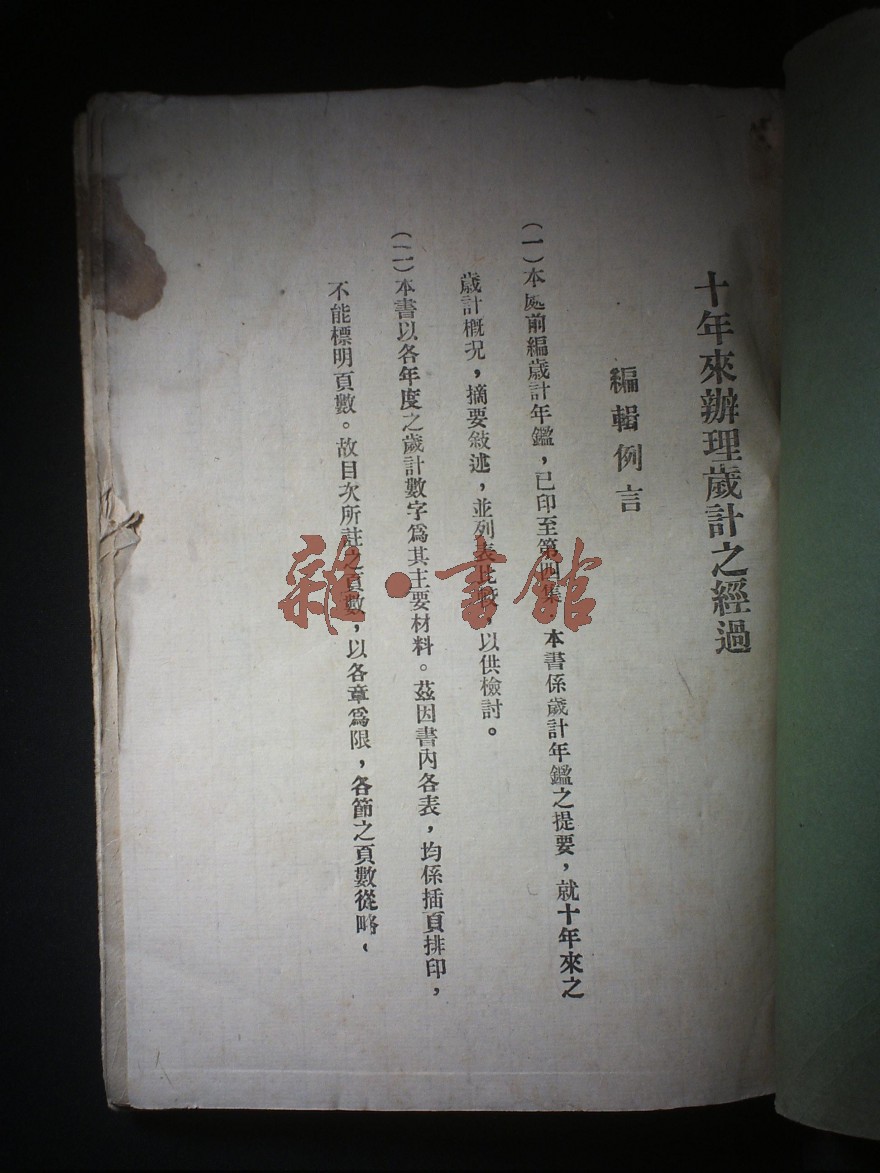 十年來辦理歲計之經過
編輯例言
(一)本處前編歲計年鑑，已印至第四集 本書係歲計年鑑之提要，就十年來之
歲計概況，摘要敍述，並列表比較，以供檢討。
(二)本書以各年度之歲計數字爲其主要材料。茲因書內各表，均係插頁排印，
不能標明頁數。故目次所註之頁數，以各章爲限，各節之頁數從略、
雜·書館